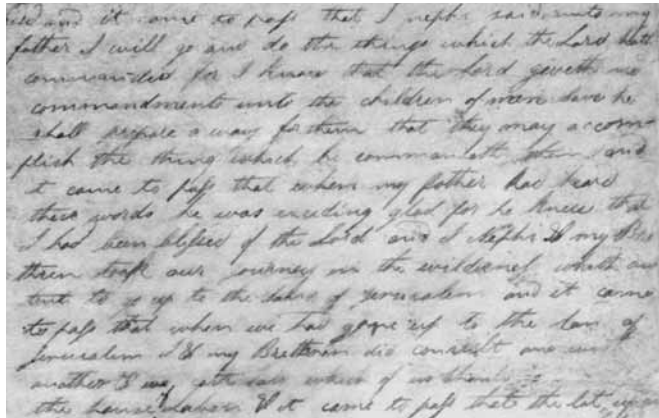 and it came to pass that I nephi said unto my
father I will go and do the things which the Lord hath
commanded for I know that the Lord giveth no
commandments unto the children of men save he
shall prepare a way for them that they may accom
plish the thing which he commandeth them and
it came to pass that when my father had heard
these words he was exceding glad for he knew that
I had been blessed of the Lord and I Nephi & my Bre
thren took our journey in the wilderness with our
tent to go up to the land of Jerusalem and it came
to pass that when we had gone up to the lan of
Jerusalem I & my Bretheren did consult one with
another & we cast lots which of us should
the house Laban & it came to pass that the lot